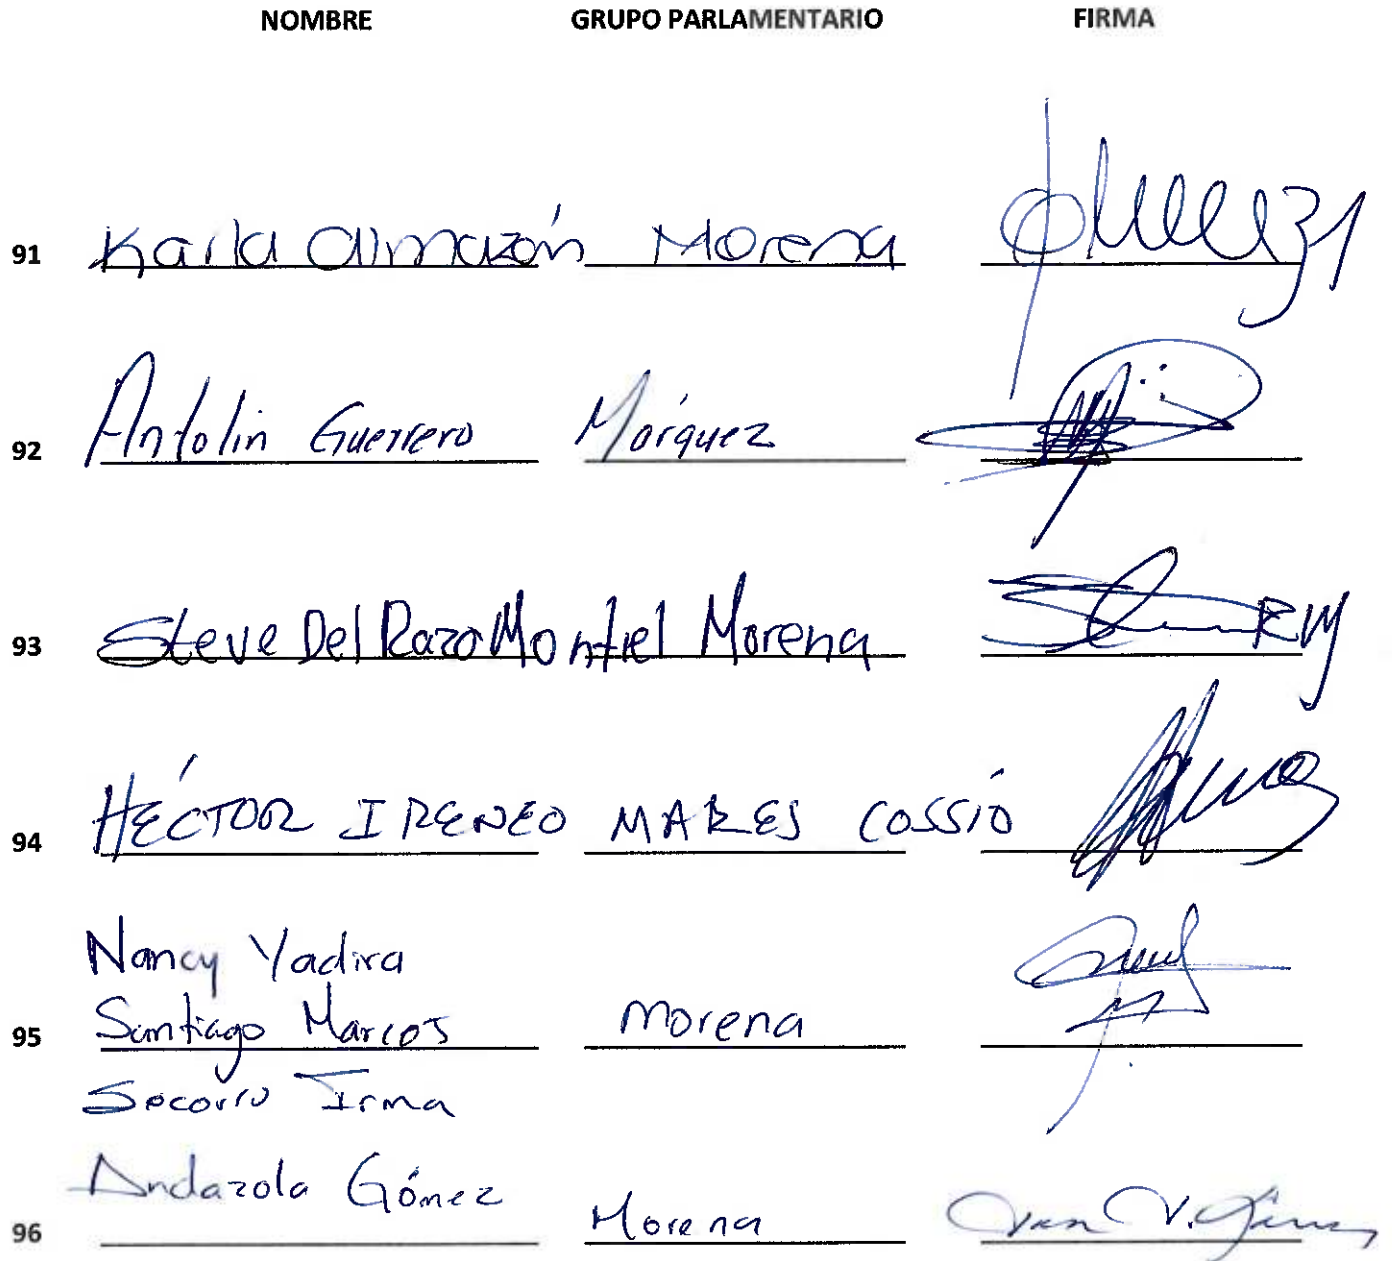 NOMBRE GRUPO PARLAMENTARIO FIRMA
91 Karla Almazón Morena
92 Antolin Guerrero Márquez
93 Steve Del Razo Montiel Morena
94 HÉCTOR IRENEO MARES COSSÍO
Nancy Yadira
95 Santiago Marcos Morena
Socorro Irma
Andazola Gómez
96 Morena